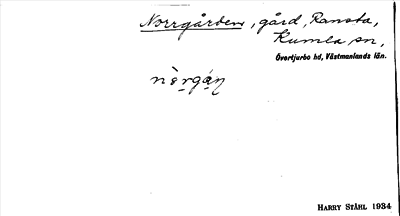 Norrgården, gård, Ransta,
Kumla sn,
Övertjurbo hd, Västmanlands län.
nòrgá̱ṇ
HARRY STÅHL 1934